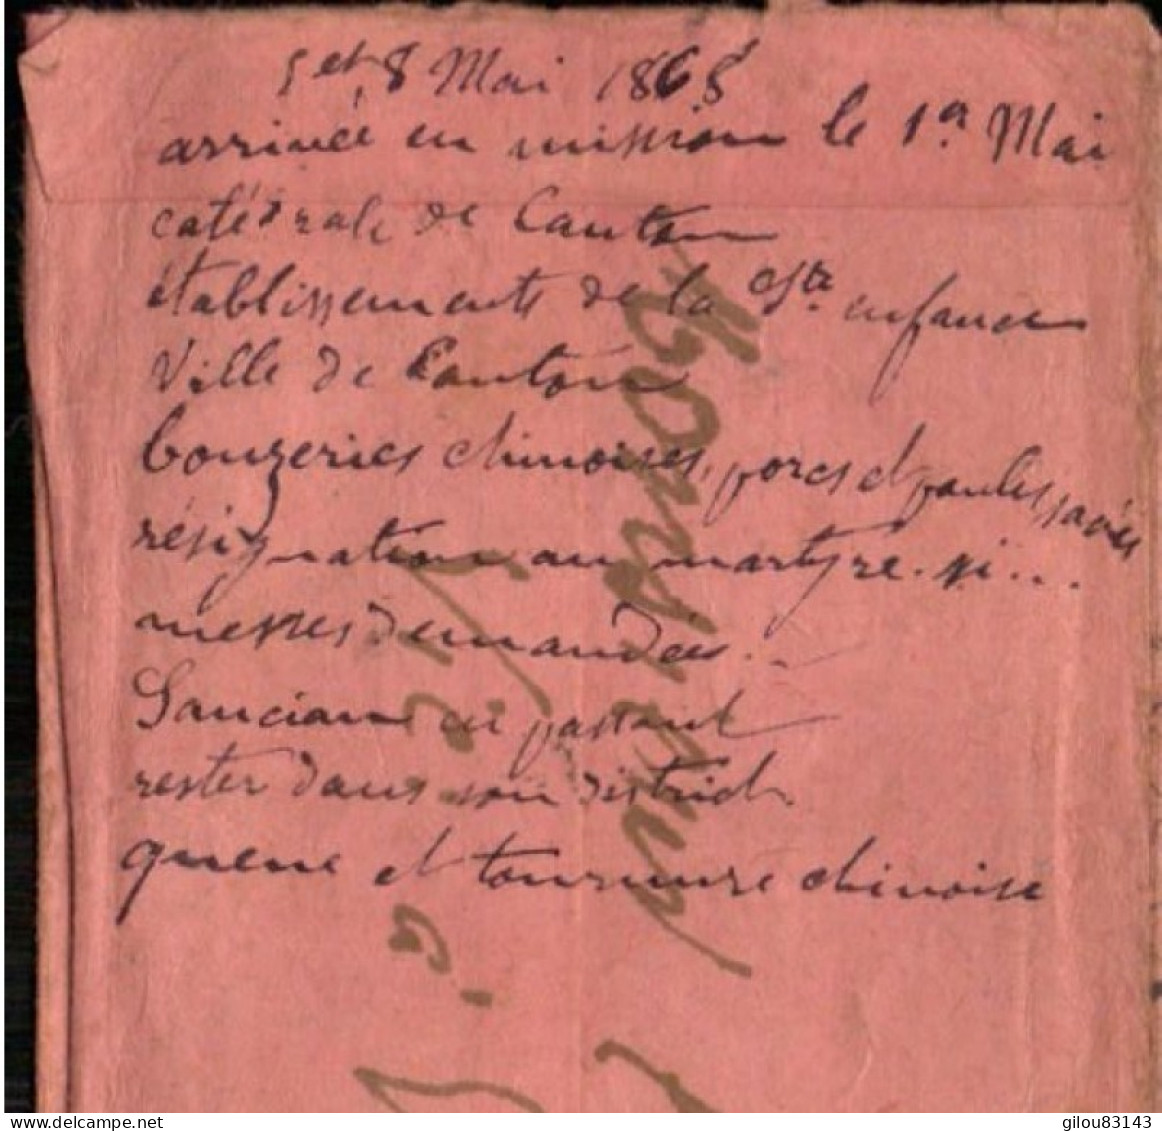 5 et 8 Mai 1868
arrivée en mission le 1er Mai
catédrale de Canton
établissements de la Ste enfance
Ville de Canton
bonzeries chinoises, porcs et poules sacrés
résignation au martyre. si...
messes demandées..
Sancian en passant
rester dans son district.
queue et tournure chinoise
delcampe.net
gilou83143